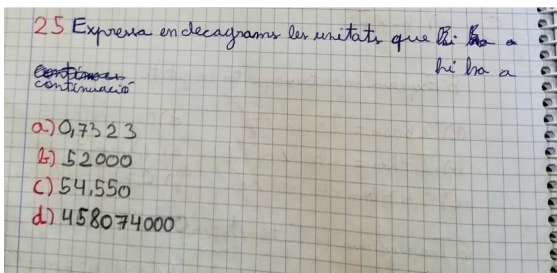 25 Expressa en decagrams les unitats que hi ha a
hi ha a
continuació
a) 0,7323
b) 52000
c) 54,550
d) 458074000